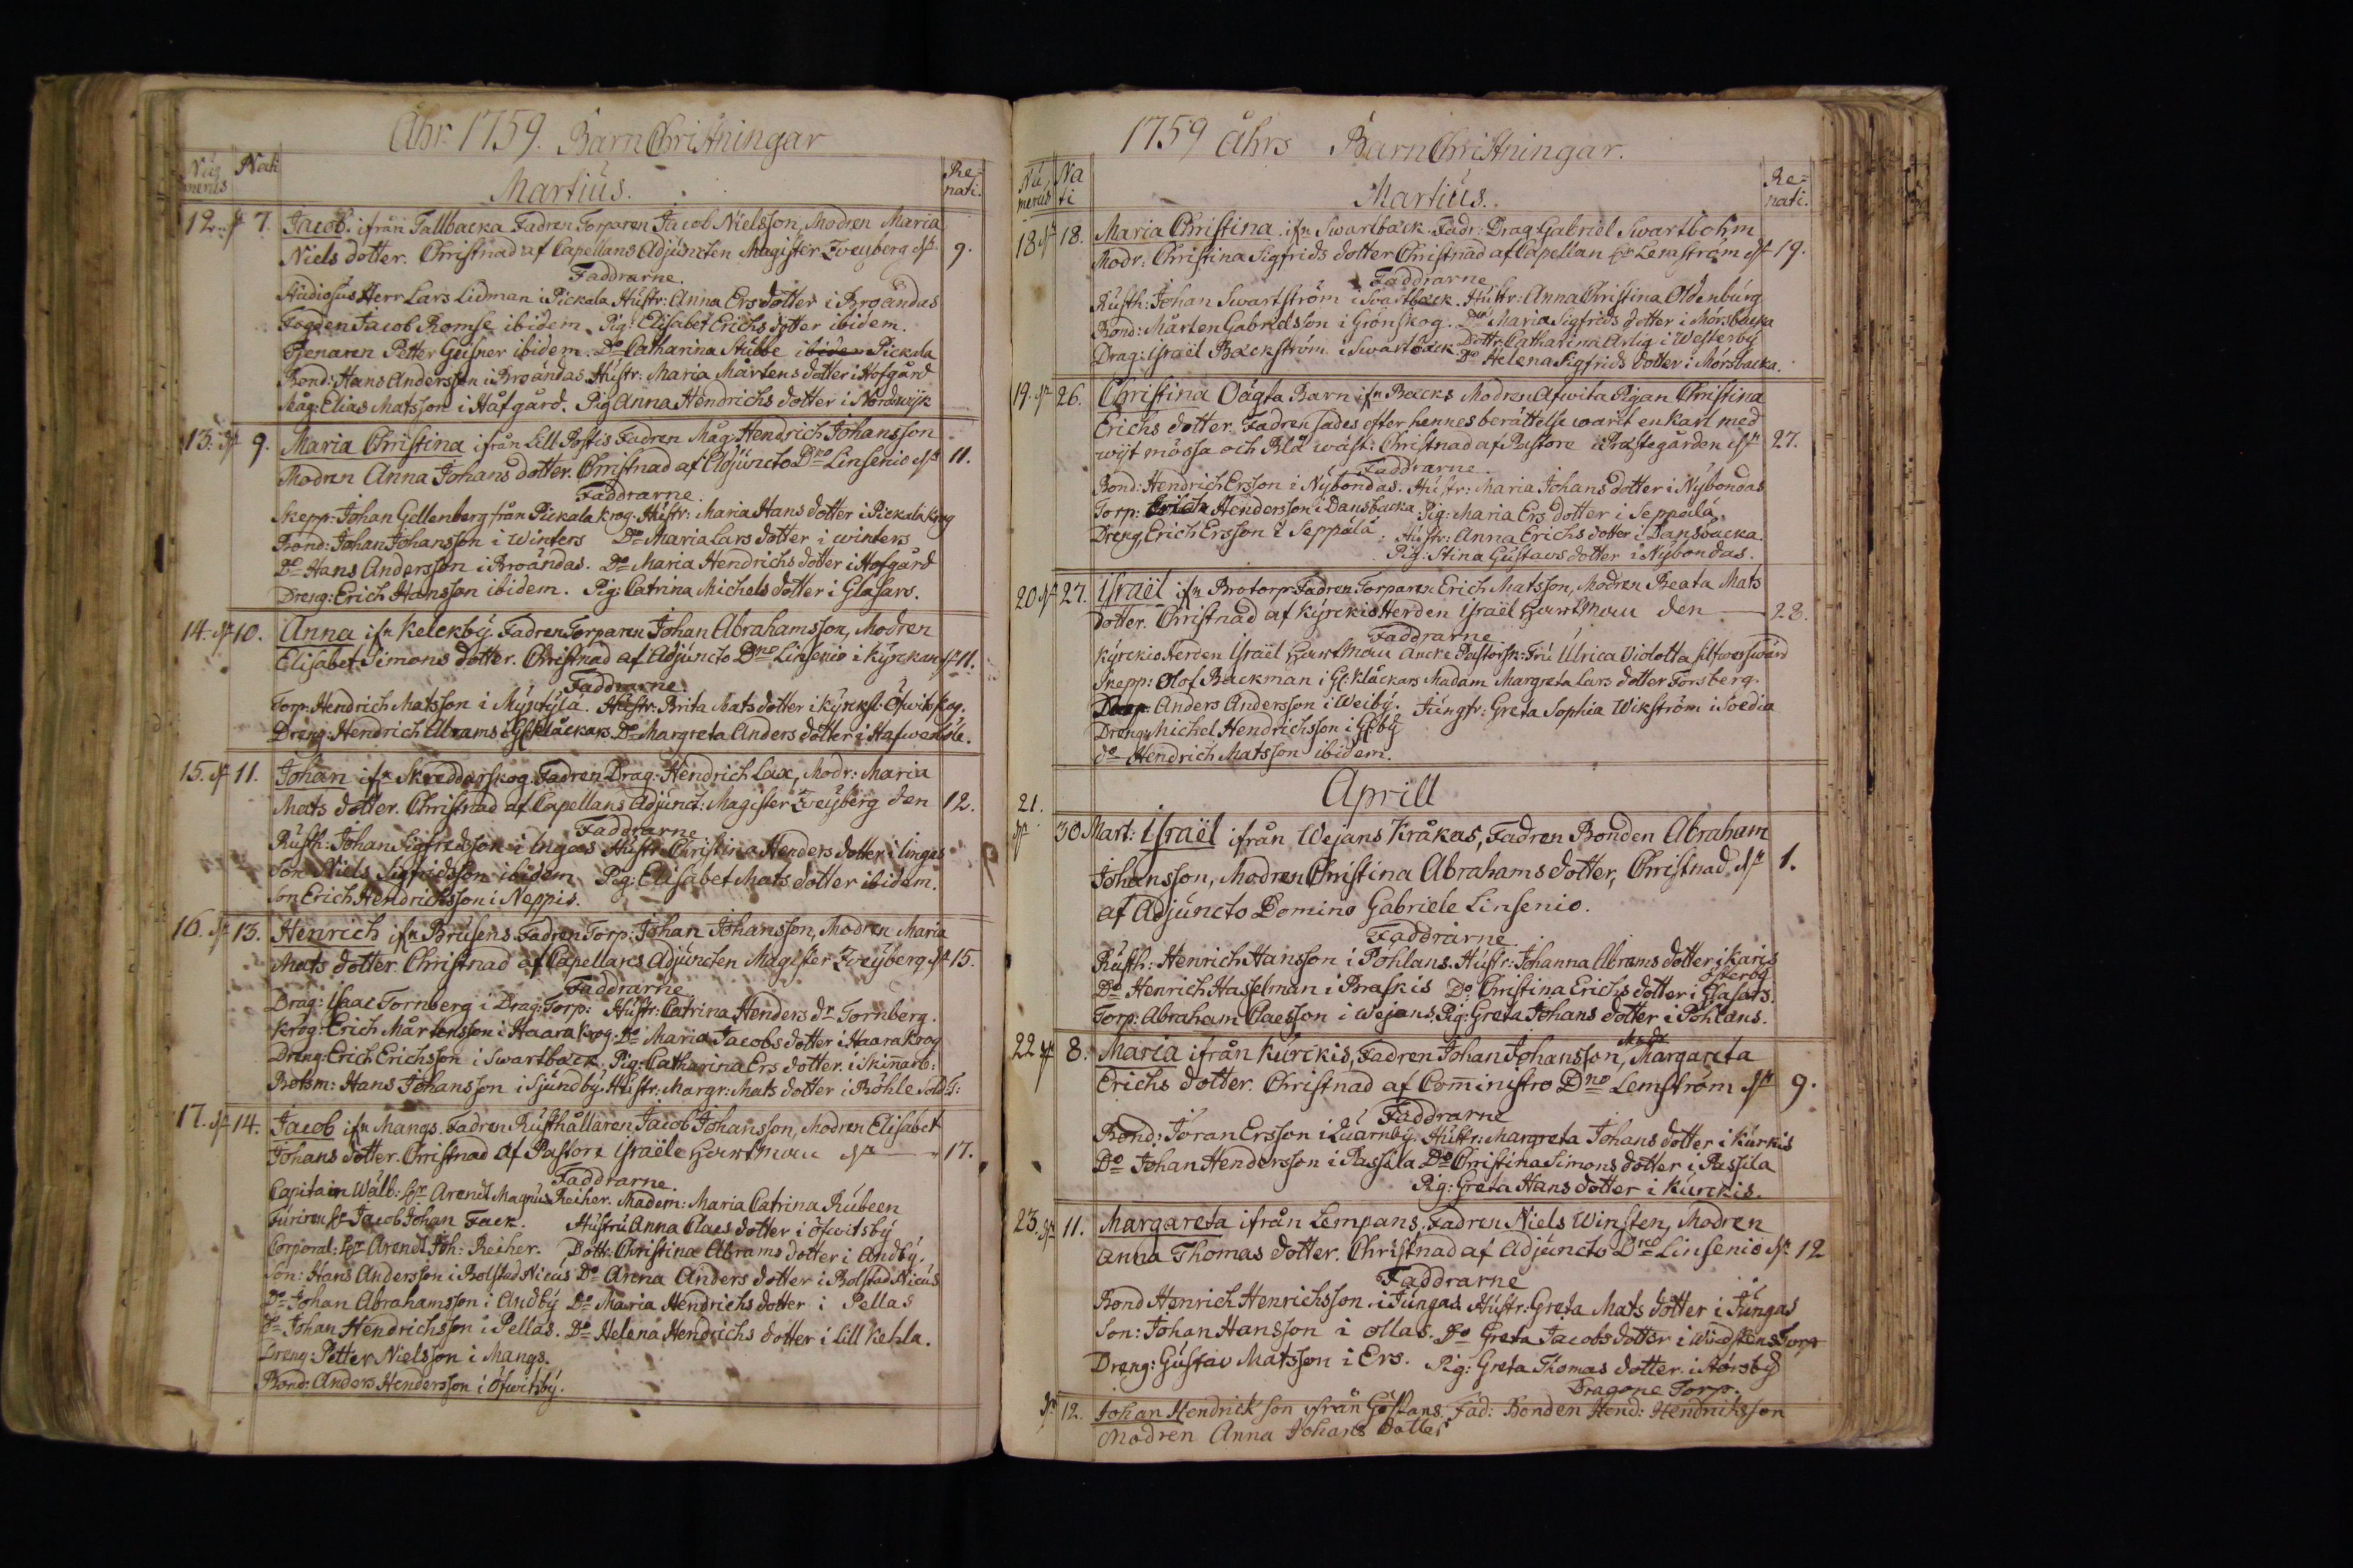 Åhr 1759. Barn Christningar
Nu,
merus
Nati
Martius.
Re=
nati.
12. 7. Jacob. ifrån Tallbacka Fadren Torparen Jacob Nielsson, Modren Maria
Niels dotter. Christnad af Capellans Adjuncten Magister Zveyberg 9.
Faddrarne.
Studiosus Herr Lars Lidman i Pickala Hustr: Anna Ers dotter i Broändas
Fogden Jacob Romse ibidem Pig: Elisabet Erichs dotter ibidem.
Tjenaren Petter Geisner ibidem. Do Catharina Stubbe Pickala
Bond: Hans Andersson i Broändas Hustr: Maria Mårtens dotter i Hofgård
Måg: Elias Matsson i Håfgård. Pig Anna Hendrichs dotter i Nordwyk
13. 9. Maria Christina ifrån Lill Postis Fadren Måg: Hendrich Johansson
Modren Anna Johans dotter. Christnad af Adjuncto Dno Linsenio 11.
Faddrarne.
Skepp: Johan Gellenberg från Pickala krog Hustr: Maria Hans dotter i Pickala krog
Bond: Johan Johansson i Winters Do Maria Lars dotter i winters
Do Hans Andersson i Broändas. Do Maria Hendrichs dotter i Hofgård
Dreng: Erich Hansson ibidem. Pig: Catrina Michels dotter i Glasars.
14. 10. Anna ifn Kelekby. Fadren Torparen Johan Abrahamsson, Modren
Elisabet Simons dotter. Christnad af Adjuncto Dno Linsenio i Kyrckan 11.
Faddrarne.
Torp: Hendrich Matsson i Hustr: Brita Mats dotter i
Dreng: Hendrich Abrams i Do Margreta Anders dotter i
15. 11. Johan ifn Skreddarskog: Fadren Drag: Hendrich Lax, Modr: Maria
Mats dotter. Christnad af Capellans Adjunct: Magister Zveyberg den 12.
Faddrarne
Rusth: Johan Sigfredsson i Ingas Hustr: Christina Henders dotter i Ingas
Son Niels Sigfridsson ibidem Pig: Elisabet Mats dotter ibidem.
Son Erich Hendrichsson i Neppis.
16. 13. Henrich ifn Brusens Fadren Torp: Johan Johansson, Modren Maria
Mats dotter Christnad af Capellans Adjuncten Magister Zveyberg 15.
Faddrarne
Drag: Isaac Tornberg i Drag: Torp: Hustr: Catrina Henders dr Tornberg.
Krög: Erich Mårtensson i Haara krog. Do Maria Jacobs dotter i Haara krog
Dreng: Erich Erichsson i Swartback Pig: Catharina Ers dotter i Skinnarb:
Botsm: Hans Johansson i Sjundby. Hustr: Margr: Mats dotter i Böhle
17. 14. Jacob ifn Mangs. Fadren Rusthållaren Jacob Johansson, Modren Elisabet
Johans dotter. Christnad af Pastore Israële Hartman 17.
Faddrarne.
Capitain Wälb: Hr Arendt Magnus Reiher. Madem: Maria Catrina Rubeen
Furiren Hr Jacob Johan Fack. Hustru Anna Claes dotter i Öfwitsby
Corporal: Hr Arendt Joh: Reiher. Dott: Christina Abrams dotter i Andby.
Son: Hans Andersson i Bolstad Nicus Do Anna Anders dotter i Bolstad Nicus
Do Johan Abrahamsson i Andby Do Maria Hendrichs dotter i Pellas
Do Johan Hendrichsson i Pellas. Do Helena Hendrichs dotter i Lill Kehla.
Dreng: Petter Nielsson i Mangs.
Bond: Anders Hendersson i Öfwitsby.
1759 åhrs Barn Christningar.
Nu,
merus
Na
ti
Martius.
Re=
nati.
18 18. Maria Christina ifn Swartback. Fadr: Drag Gabriel Swartbohm
Modr: Christina Sigfrids dotter Christnad af Capellan Hr Lemström 19.
Faddrarne
Rusth: Johan Swartström i Swartback. Hustr: Anna Christina Oldenburg
Bond: Mårten Gabrielsson i Grönskog. Do Maria Sigfrids dotter i Mörsbacka
Drag: Israël Backström i Swartback Dottr Catharina Arlig i Westerby
Do Helena Sigfrids dotter i Mörsbacka.
19. 26. Christina Oägta Barn ifn Backs Modren Afwita Pigan Christina
Erichs dotter. Fadren sades efter hennes berättelse warit en karl med
wyt mössa och Blå wäst: Christnad af Pastore i Prästegården 27.
Faddrarne.
Bond: Hendrich Ersson i Nybondas. Hustr: Maria Johans dotter i Nybondas
Torp: Erich Hendersson i Dansbacka Pig: Maria Ers dotter i Seppälä.
Dreng Erich Ersson i Seppälä. Hustr: Anna Erichs dotter i Dansbacka
Pig: Stina Gustavs dotter i Nybondas.
20 27. Israël ifn Brotorp. Fadren Torparen Erich Matsson, Modren Beata Mats
dotter. Christnad af Kyrckioherden Israël Hartman den 28.
Faddrarne
Kyrckioherden Israël Hartman Pastorsk: Fru Ulrica Violetta
Skepp: Olof Backman i Gl: klåckars Madam Margreta Lars dotter Forsberg.
Anders Andersson i Weiby. Jungfr: Greta Sophia Wikström i Soedia
Dreng: Michel Hendrichsson i
do Hendrich Matsson ibidem.
Aprill
21. 30 Mart: Israël ifrån Wejans Kråkas, Fadren Bonden Abraham
Johansson, Modren Christina Abrahams dotter, Christnad 1.
af Adjuncto Domino Gabriele Linsenio.
Faddrarne
Rusth: Henrich Hansson i Pohlans. Hustr: Johanna Abrams dotter i Karis
österby
Do Henrich Hasselman i Braskis Do Christina Erichs dotter i Glasars.
Torp: Abraham Claesson i Wejans. Pig: Greta Johans dotter i Pohlans.
22 8. Maria ifrån Kurckis, Fadren Johan Johansson, Modr Margareta
Erichs dotter. Christnad af Comministro Dno Lemström 9.
Faddrarne
Bond: Jöran Ersson i Quarnby. Hustr: Margreta Johans dotter i Kurkis
Do Johan Hendersson i Passila Do Christina Simons dotter i Passila
Pig: Greta Hans dotter i Kurckis.
23. 11. Margareta ifrån Lempans. Fadren Niels Winsten, Modren
Anna Thomas dotter. Christnad af Adjuncto Dno Linsenio 12
Faddrarne
Bond Henrich Henrichsson i Jungas Hustr: Greta Mats dotter i Jungas
Son: Johan Hansson i Ollas. Do Greta Jacobs dotter i Windstens Torp
Dreng: Gustav Matsson i Ers. Pig: Greta Thomas dotter i Störsby
Dragone Torp.
12. Johan Hendrickson ifrån Göstans. Fad: Bonden Hend: Hendriksson
Modren Anna Johans Dotter